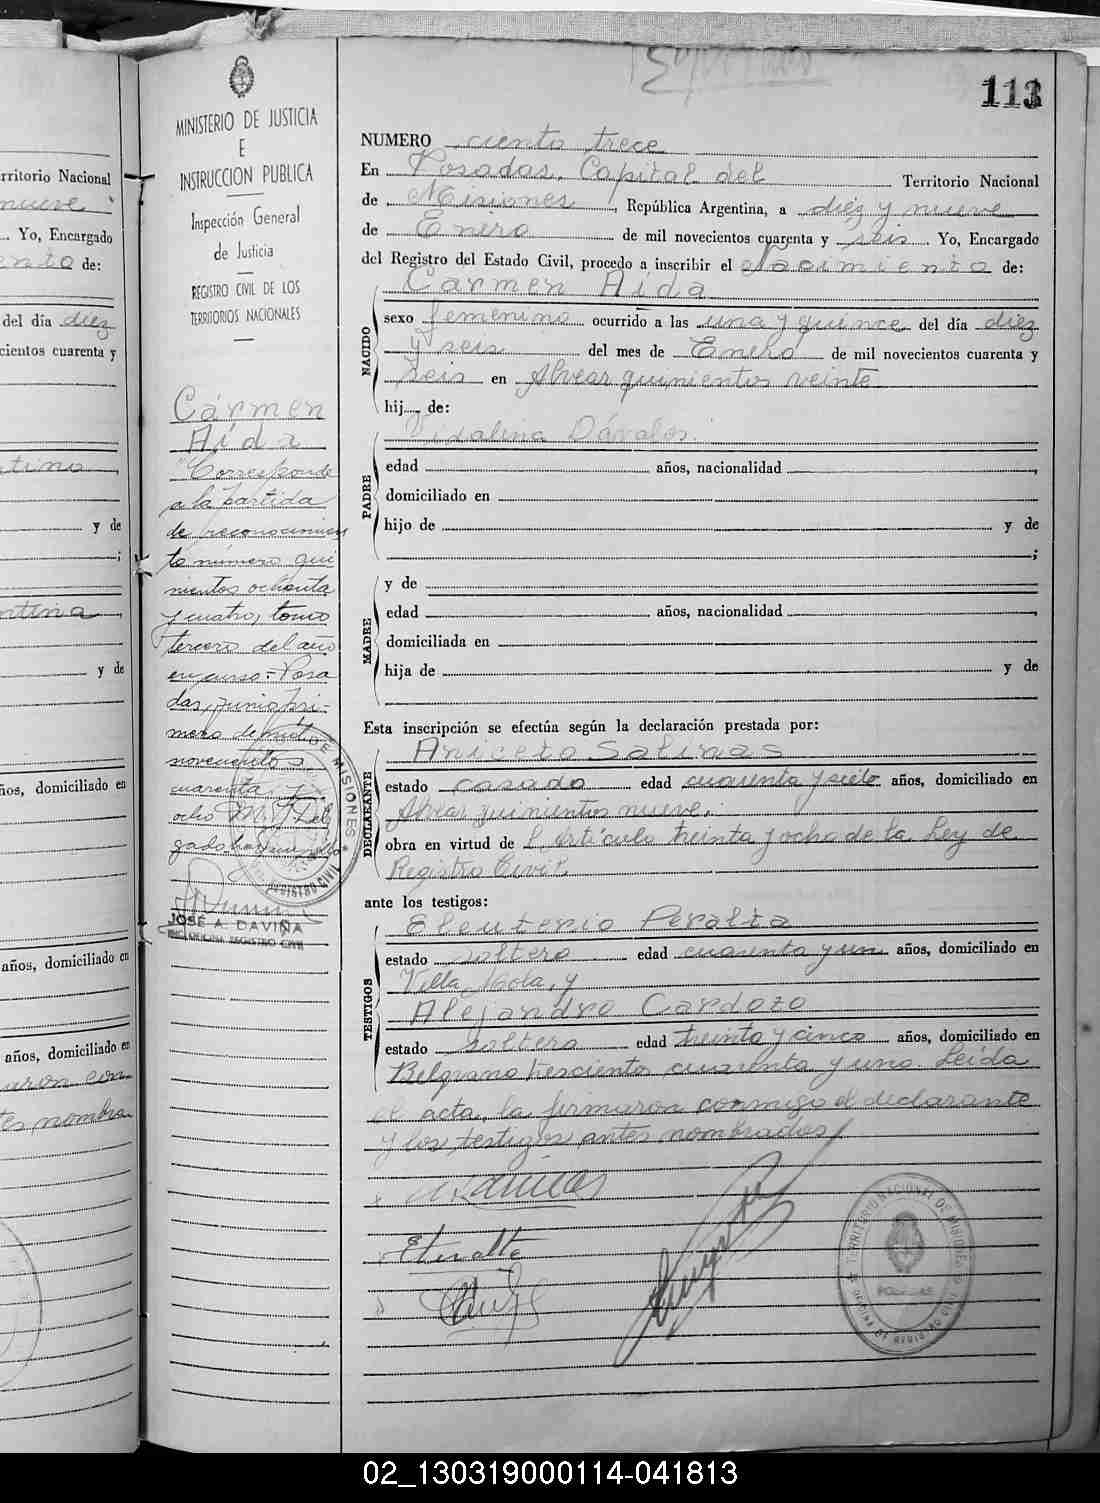 113
MINISTERIO DE JUSTICIA
E
INSTRUCCION PUBLICA
Inspección General
de Justicia
REGISTRO CIVIL DE LOS
TERRITORIOS NACIONALES
Cármen
Aída
"Corresponde
a la partida
de reconocimien
to número qui
nientos ochenta
y cuatro, tomo
tercero del año
en curso.- Posa
das, junio pri-
mero de mil
novecientos
cuarenta y
ocho
JOSÉ A. DAVIÑA
ENC. OFICINA REGISTRO CIVIL
NUMERO ciento trece
En Posadas, Capital del Territorio Nacional
de Misiones, República Argentina, a diéz y nueve
de Enero de mil novecientos cuarenta y seis. Yo, Encargado
del Registro del Estado Civil, procedo a inscribir el Nacimiento de:
NACIDO
Carmen Aída
sexo femenino ocurrido a las una y quince del día diez
y seis del mes de Enero de mil novecientos cuarenta y
seis en Alvear quinientos veinte
hij de:
PADRE
Dávalos.
edad años, nacionalidad ,
domiciliado en
hijo de y de
;
MADRE
y de
edad años, nacionalidad ,
domiciliada en
hija de y de
Esta inscripción se efectúa según la declaración prestada por:
DECLARANTE
Aniceto Salinas
estado casado edad cuarenta y siete años, domiciliado en
Alvear quinientos nueve.
obra en virtud de l. Artículo treinta y ocho de la Ley de
Registro Civil.
ante los testigos:
TESTIGOS
Eleuterio Peralta
estado soltero edad cuarenta y un años, domiciliado en
Villa Mola, y
Alejandro Cardozo
estado soltero edad treinta y cinco años, domiciliado en
Belgrano trescientos cuarenta y uno. Leida
el acta, la firmaron conmigo el declarante
y los testigos antes nombrados.
TERRITORIO NACIONAL DE MISIONES
OFICINA DE REGISTRO CIVIL
POSADAS
DE MISIONES
REGISTRO CIVIL
rritorio Nacional
nueve
Yo, Encargado
ento de:
del día diez
cientos cuarenta y
ntino,
y de
;
ntina,
y de
ños, domiciliado en
años, domiciliado en
años, domiciliado en
aron con
tes nombra
02_130319000114-041813